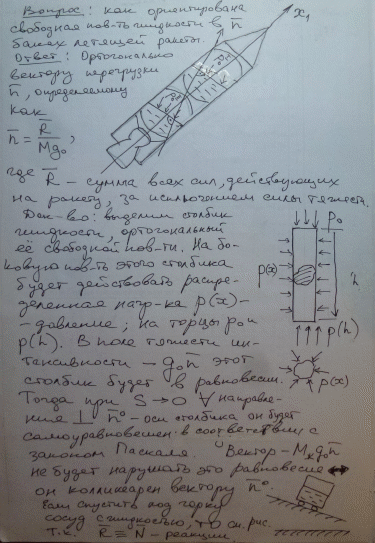 Вопрос: как ориентирована
свободная пов-ть жидкости в
баках летящей ракеты. n̄ x₁
Ответ: Ортогонально
вектору перегрузки
n̄, определяемому
как
n̄ = R̄ / Mg₀,
где R̄ – сумма всех сил, действующих
на ракету, за исключением силы тяжести.
Док-во: выделим столбик
жидкости, ортогональный
её свободной пов-ти. На бо-
ковую пов-ть этого столбика
будет действовать распре-
деленная нагр-ка p(x) –
– давление; на торцы p₀ и
p(h). В поле тяжести ин-
тенсивности – g₀n̄ этот
столбик будет в равновесии.
Тогда при S → 0 ∀ направле-
ния ⊥ n̄° – оси столбика он будет
самоуравновешен в соответствии с
законом Паскаля. Вектор – Mₓg₀n̄
не будет нарушать это равновесие ↔
он коллинеарен вектору n̄°.
Если спустить под горку
сосуд с жидкостью, то см. рис.
Т.к. R̄ ≡ N̄ – реакции.
p₀
p(x)
h
p(h)
p(x)